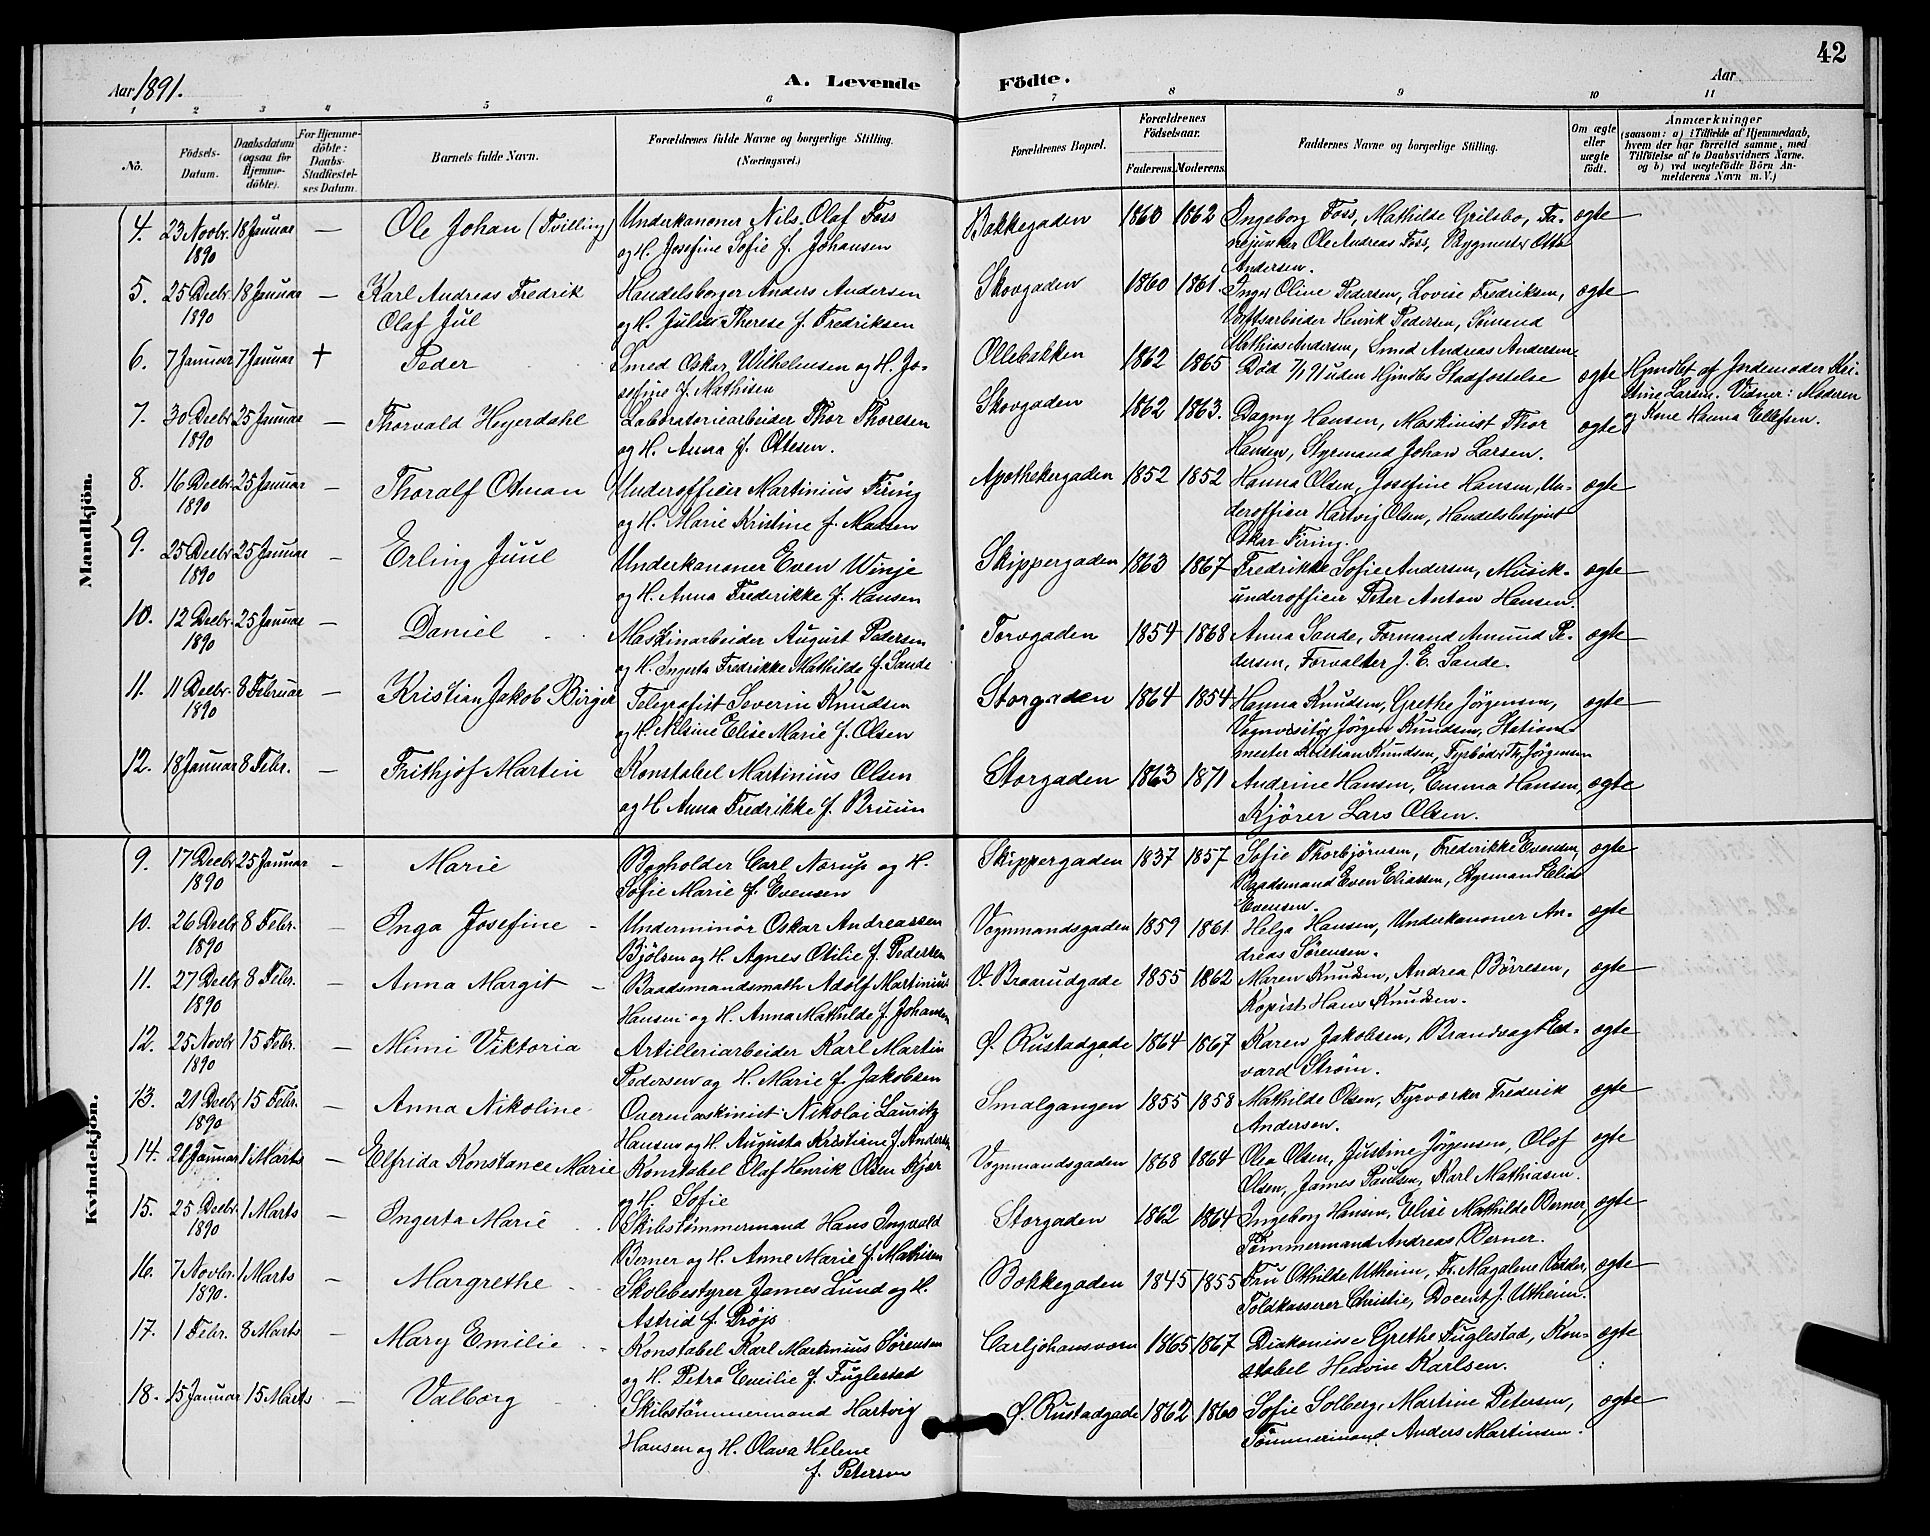 42
Aar 1891.
A. Levende Födte.
Aar
1 2 3 4 5 6 7 8 9 10 11
No.
Födsels-Datum.
Daabsdatum (ogsaa for Hjemmedöbte).
For Hjemmedöbte: Daabs-Stadfæstelses Datum.
Barnets fulde Navn.
Forældrenes fulde Navne og borgerlige Stilling. (Næringsvei.)
Forældrenes Bopæl.
Forældrenes Födselsaar.
Faderens. Moderens.
Faddernes Navne og borgerlige Stilling.
Om ægte eller uægte födt.
Anmærkninger
(saasom: a) i Tilfælde af Hjemmedaab, hvem der har forrettet samme, med Tilföielse af to Daabsvidners Navne. og b) ved uægtefödte Börn Anmelderens Navn m. V.)
Mandkjön.
4. 23 Novbr. 1890 18 Januar — Ole Johan (Tvilling) Underkanoner Nils Olaf Foss og H. Josefine Sofie f. Johansen Bakkegaden 1860 1862 Ingeborg Foss, Mathilde Grilsbo, Fanejunker Ole Andreas Foss, Bygmester Otto Andersen. ægte
5. 25 Decbr. 1890 18 Januar — Karl Andreas Fredrik Olaf Jul Handelsborger Anders Andersen og H. Julie Therese f. Fredriksen Skovgaden 1860 1861. Inger Oline Pedersen, Lovise Fredriksen, Værftsarbeider Henrik Pedersen, Sømand Mathias Andersen, Smed Andreas Andersen. ægte
6. 7 Januar 7 Januar † Peder Smed Oskar Wilhelmsen og H. Josefine f. Mathisen Ollebakken 1862 1865 Død 7/1 91 uden Hjmdbs Stadfæstelse ægte Hjmdbt af Jordemoder Kristine Larsen. Vidner: Moderen og Kone Hanna Ellefsen.
7. 30 Decbr. 1890 25 Januar — Thorvald Heyerdahl Laboratoriearbeider Thor Thoresen og H. Anna f. Ottesen. Skovgaden 1862 1863. Dagny Hansen, Maskinist Thor Hansen, Styrmand Johan Larsen. ægte
8. 16 Decbr. 1890 25 Januar — Thoralf Otman Underofficer Martinius Firing og H. Marie Kristine f. Madsen Apothekergaden 1852 1852 Hanna Olsen, Josefine Hansen, Underofficer Hartvig Olsen, Handelsbetjent Oskar Firing. ægte
9. 25 Decbr. 1890 25 Januar — Erling Juul Underkanoner Even Winje og H. Anna Frederikke f. Hansen Skippergaden 1863 1867 Fredrikke Sofie Andersen, Musikunderofficer Peter Anton Hansen. ægte
10. 12 Decbr. 1890 25 Januar — Daniel Maskinarbeider August Pedersen og H. Ingerta Fredrikke Mathilde f. Sande Torvgaden 1854 1868 Anna Sande, Formand Amund Pedersen, Forvalter J. E. Sande. ægte
11. 11 Decbr. 1890 8 Februar — Kristian Jakob Birger Telegrafist Severin Knudsen og H. Nilsine Elise Marie f. Olsen Storgaden 1864 1854 Hanna Knudsen, Grethe Jørgensen, Vognvisitør Jørgen Knudsen, Stationsmester Kristian Knudsen, Fyrbøder Th. Jørgensen ægte
12. 18 Januar 8 Febr. — Frithjof Martin Konstabel Martinius Olsen og H. Anna Fredrikke f. Bruun Storgaden 1863 1871 Andrine Hansen, Emma Hansen, Kjører Lars Olsen. ægte
Kvindekjön.
9. 17 Decbr 1890 25 Januar — Marie Bogholder Carl Aarup og H. Sofie Marie f. Evensen Skippergaden 1837 1857 Sofie Thorbjørnsen, Frederikke Evensen, Baadsmand Even Eliassen, Styrmand Elias Evensen. ægte
10. 26 Decbr 1890 8 Febr. — Inga Josefine Underminør Oskar Andreassen Bjølsen og H. Agnes Otilie f. Pedersen Vognmandsgaden 1859 1861. Helga Hansen, Underkanoner Andreas Sørensen. ægte
11. 27 Decbr 1890 8 Febr. — Anna Margit Baadsmandsmath Adolf Martinius Hansen og H. Anna Mathilde f. Johansen V. Braarudgade 1855 1862 Maren Knudsen, Andrea Børresen, Kopist Hans Knudsen. ægte
12. 25 Novbr 1890 15 Febr. — Mimi Viktoria Artilleriarbeider Karl Martin Pedersen og H. Marie f. Jakobsen Ø. Rustadgade 1864 1867 Karen Jakobsen, Brandvagt Edvard Strøm. ægte
13. 21 Decbr 1890 15 Febr. — Anna Nikoline Overmaskinist Nikolai Lauritz Hansen og H. Augusta Kristiane f. Andersen Smalgangen 1855 1858 Mathilde Olsen, Fyrværker Frederik Andersen. ægte
14. 21 Januar 1 Marts — Elfrida Konstance Marie Konstabel Olaf Henrik Olsen Kjær og H. Sofie Vognmandsgaden 1868 1864 Olea Olsen, Justine Jørgensen, Olof Olsen, James Paulsen, Karl Mathiasen. ægte
15. 25 Decbr 1890 1 Marts — Ingerta Marie Skibstømmermand Hans Ingvald Berner og H. Anne Marie f. Mathisen Storgaden 1862 1864 Ingeborg Hansen, Elise Mathilde Berner, Tømmermand Andreas Berner. ægte
16. 7 Novbr. 1890. 1 Marts — Margrethe Skolebestyrer James Lund og H. Astrid f. Bøjs Bokkegaden 1845 1855 Fru Othilde Utheim, Fr. Magdalene, Toldkasserer Christie, Docent J. Utheim. ægte
17. 1 Febr. 8 Marts — Mary Emilie Konstabel Karl Martinius Sørensen og H. Petra Emilie f. Fuglestad Carljohansværn 1865 1867 Diakonisse Grethe Fuglestad, Konstabel Hedvin Karlsen. ægte
18. 15 Januar 15 Marts — Valborg Skibstømmermand Hartvig Hansen og H. Olava Helene f. Petersen Ø. Rustadgade 1862 1860 Sofie Solberg, Martine Petersen, Tømmermand Anders Martinsen. ægte